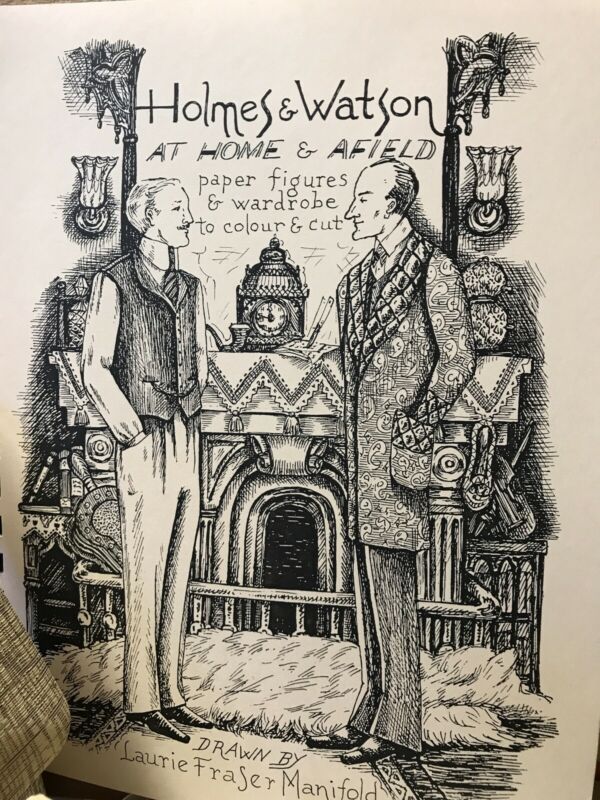 Holmes & Watson
AT HOME & AFIELD
paper figures
& wardrobe
to colour & cut
DRAWN BY
Laurie Fraser Manifold